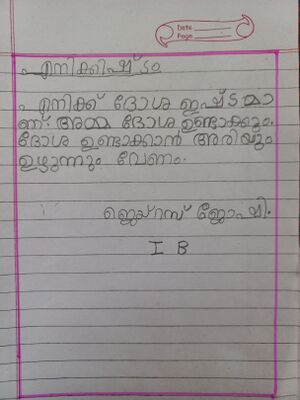 Date
Page
എനിക്കിഷ്ടം
എനിക്ക് ദോശ ഇഷ്ടമാ
ണ്. അമ്മ ദോശ ഉണ്ടാക്കും.
ദോശ ഉണ്ടാക്കാൻ അരിയും
ഉഴുന്നും വേണം.
ജെയ്റസ് ജോഷി.
I B